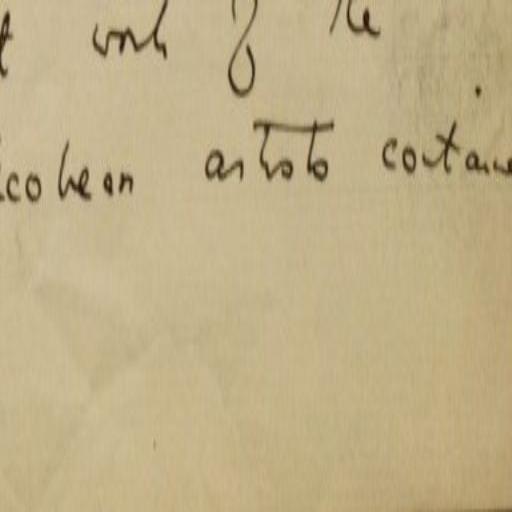 work of the
cobean artists contain